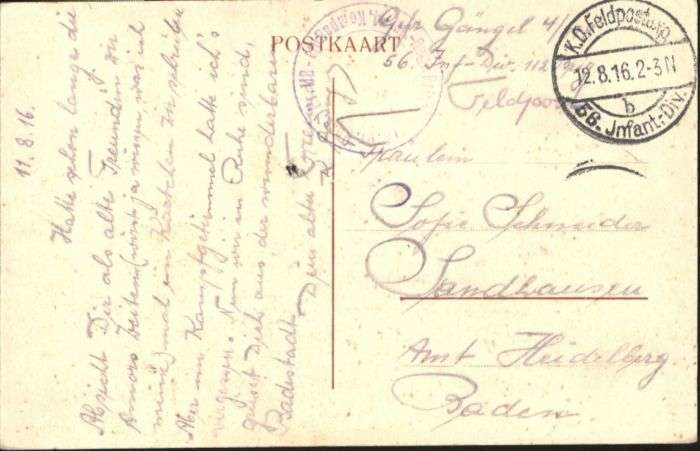 POSTKAART
Gefr Gängel 4/
56. Inf-Div. 112
Feldpost
K.D.Feldpostexp.
12.8.16.2-3N
b
56. Infant.-Div.
Fräulein
Sofie Schneider
Sandhausen
Amt Heidelberg
Baden
11. 8. 16.
Hatte schon lange die
Absicht Dir als alte Freundin von
Amors Zeiten (wirst ja wissen was ich
meine) mal ein Kärtchen zu schreiben
Aber im Kampfgetümmel hatte ich's
vergessen. Nun wir in Ruhe sind,
grüsst Dich aus der wunderbaren
Radestadt
Dein alter